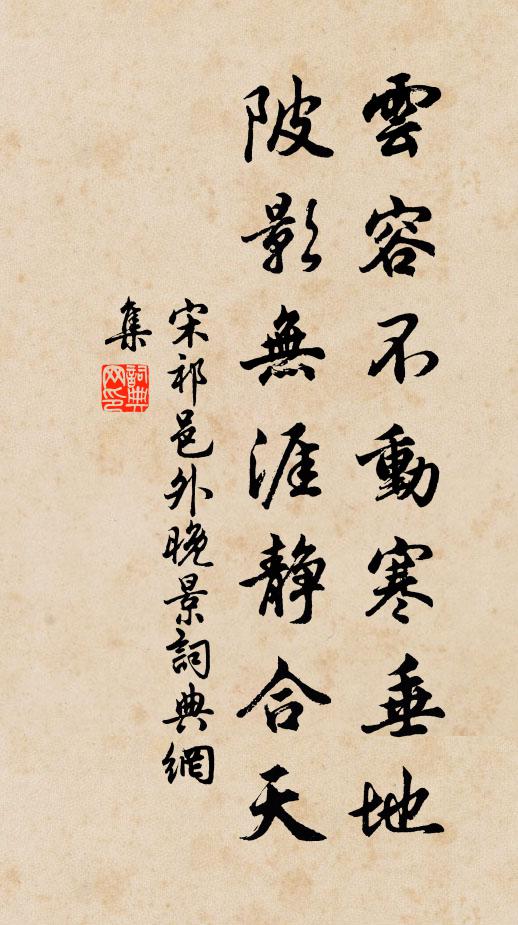 雲容不動寒垂地
陂影無涯静合天
宋祁邑外晚景詞典網
集
詞典
网印